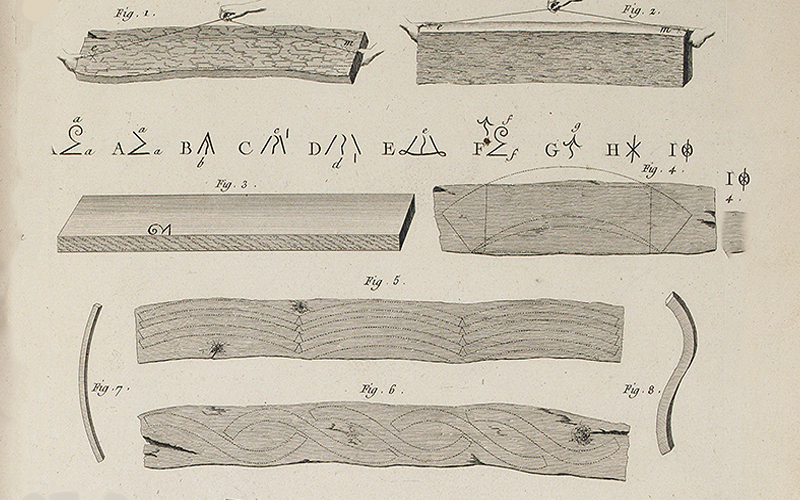 Fig. 1.
Fig. 2.
e m
e m
a a
A a a
B b
C c
D d
E e
F f f
G g
H
I
Fig. 3
Fig. 4.
I
4.
Fig. 5.
Fig. 7.
Fig. 6.
Fig. 8.